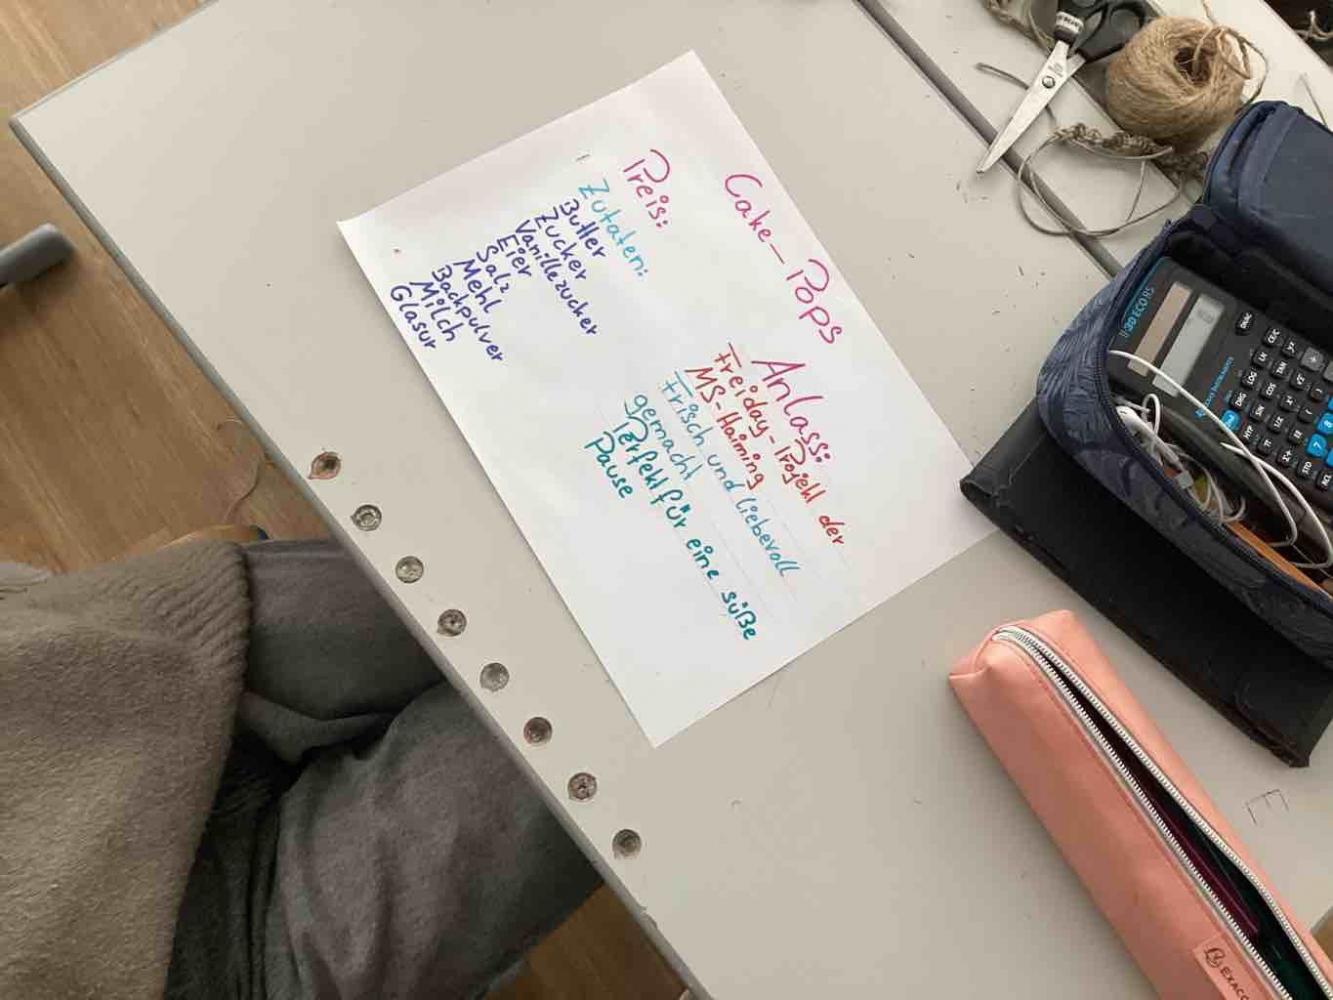 Cake-Pops
Preis:
Zutaten:
Butter
Zucker
Vanillezucker
Eier
Salz
Mehl
Backpulver
Milch
Glasur
Anlass:
Freiday-Projekt der
MS-Haiming
Frisch und liebevoll
gemacht
Perfekt für eine süße
Pause
TI-30 ECO RS
TEXAS INSTRUMENTS